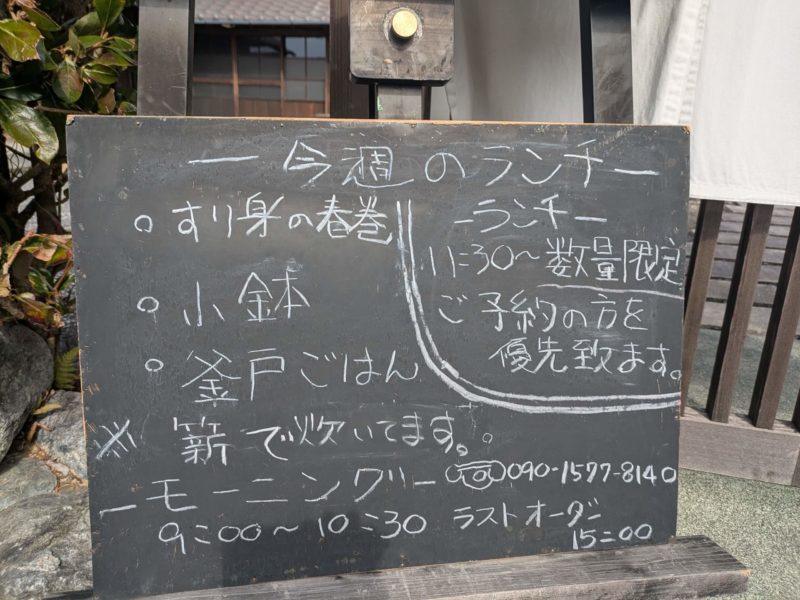 ー今週のランチー
○すり身の春巻
○小鉢
○釜戸ごはん
※薪で炊いてます。
ーランチー
11:30〜数量限定
ご予約の方を
優先致ます。
ーモーニングー
9:00〜10:30
☎090-1577-8140
ラストオーダー
15:00